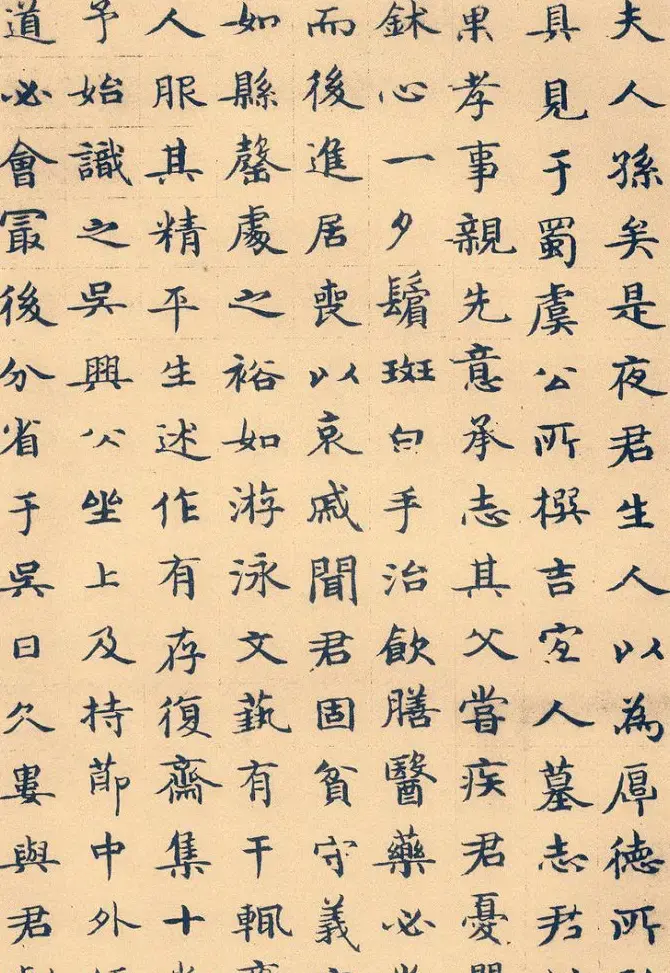 夫人孫矣是夜君生人以為厚德所
具見于蜀虞公所撰吉宜人墓志君
果孝事親先意承志其父嘗疾君憂
鉥心一夕鬚斑白手治飲膳醫藥必
而後進居喪以哀戚聞君固貧守義
如縣罄處之裕如游泳文蓺有干輒
人服其精平生述作有存復齋集十
予始識之吳興公坐上及持節中外
道必會冣後分省于吳日欠婁與君